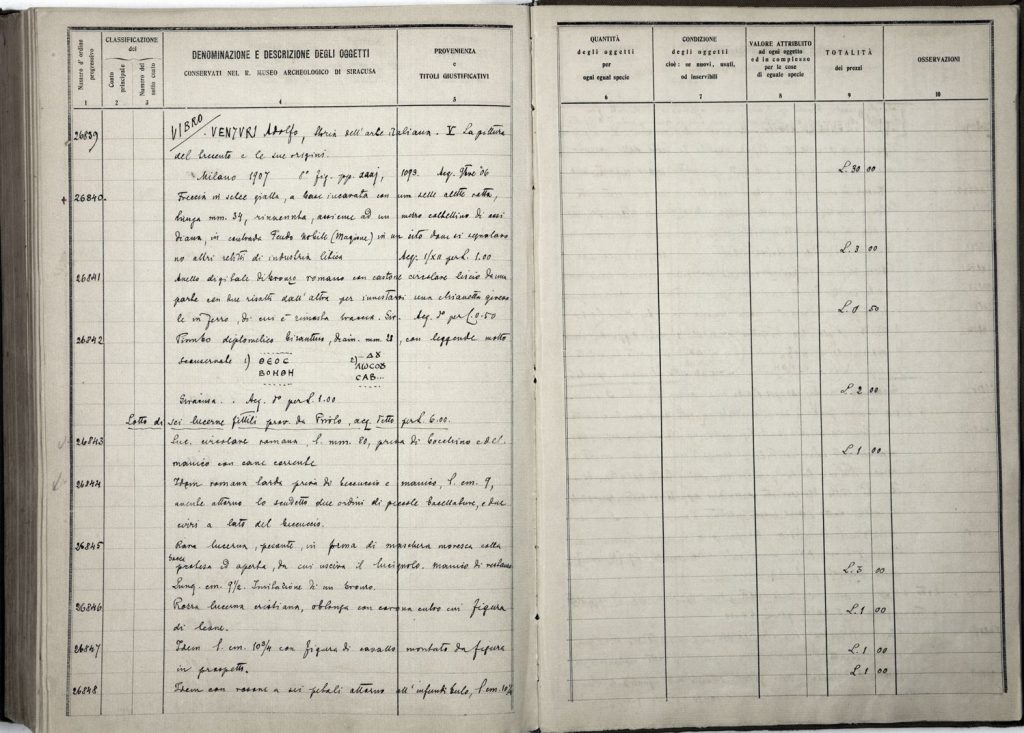 Numero d' ordine progressivo
CLASSIFICAZIONE
del
Conto principale
Numero del sotto conto
DENOMINAZIONE E DESCRIZIONE DEGLI OGGETTI
CONSERVATI NEL R. MUSEO ARCHEOLOGICO DI SIRACUSA
PROVENIENZA
e
TITOLI GIUSTIFICATIVI
1 2 3 4 5
26839 VENTURI Adolfo, Storia dell'arte italiana. V La pittura
del trecento e le sue origini.
Milano 1907 fig. pp. 1093. Acq. 9bre '06
26840. Freccia in selce gialla, a base incavata con una delle alette rotta,
lunga mm. 34, rinvenuta, assieme ad un coltellino di ossi
diana, in contrada Feudo nobile (Magione) in un sito dove si segnalaro
no altri relitti di industria litica Acq. 1/XII per L. 1.00
26841 Anello digitale di bronzo romano con castone circolare liscio da una
parte con due risalti dall'altra per innestarsi una chiavetta
le in ferro, di cui è rimasta traccia. Sir. Acq. do per L. 0.50
26842 Piombo diplomatico bizantino, diam. mm. 28, con leggende molto
1) ΘΕΟС
ΒΟΗΘΗ
2) ΔΟΥ
ΛΩСΟΥ
СΑΒ...
Siracusa. Acq. do per L. 1.00
Lotto di sei lucerne fittili prov. da Priolo, acq. detto per L. 6.00.
26843 Luc. circolare romana, l. mm. 80, priva di becchino e del
manico con cane corrente
26844 Idem romana tarda priva di beccuccio e manico, l. cm. 9,
avente attorno lo scudetto due ordini di piccole baccellature, e due
a lato del beccuccio.
26845 Rara lucerna, pesante, in forma di maschera moresca colla
bocca protesa ed aperta, da cui usciva il lucignolo. Manico di restauro
Lung. cm. 9½. Imitazione di un bronzo.
26846 Rozza lucerna cristiana, oblonga con corona entro cui figura
di leone.
26847 Idem l. cm. 10¾ con figura di cavallo montato da figura
in prospetto.
26848 Idem con rosone a sei petali attorno all'infundibulo, l. cm. 10¼
QUANTITÀ
degli oggetti
per
ogni egual specie
CONDIZIONE
degli oggetti
cioè: se nuovi, usati,
od inservibili
VALORE ATTRIBUITO
ad ogni oggetto
ed in complesso
per le cose
di eguale specie
TOTALITÀ
dei prezzi
OSSERVAZIONI
6 7 8 9 10
L. 30 00
L. 3 00
L. 0 50
L. 2 00
L. 1 00
L. 3 00
L. 1 00
L. 1 00
L. 1 00